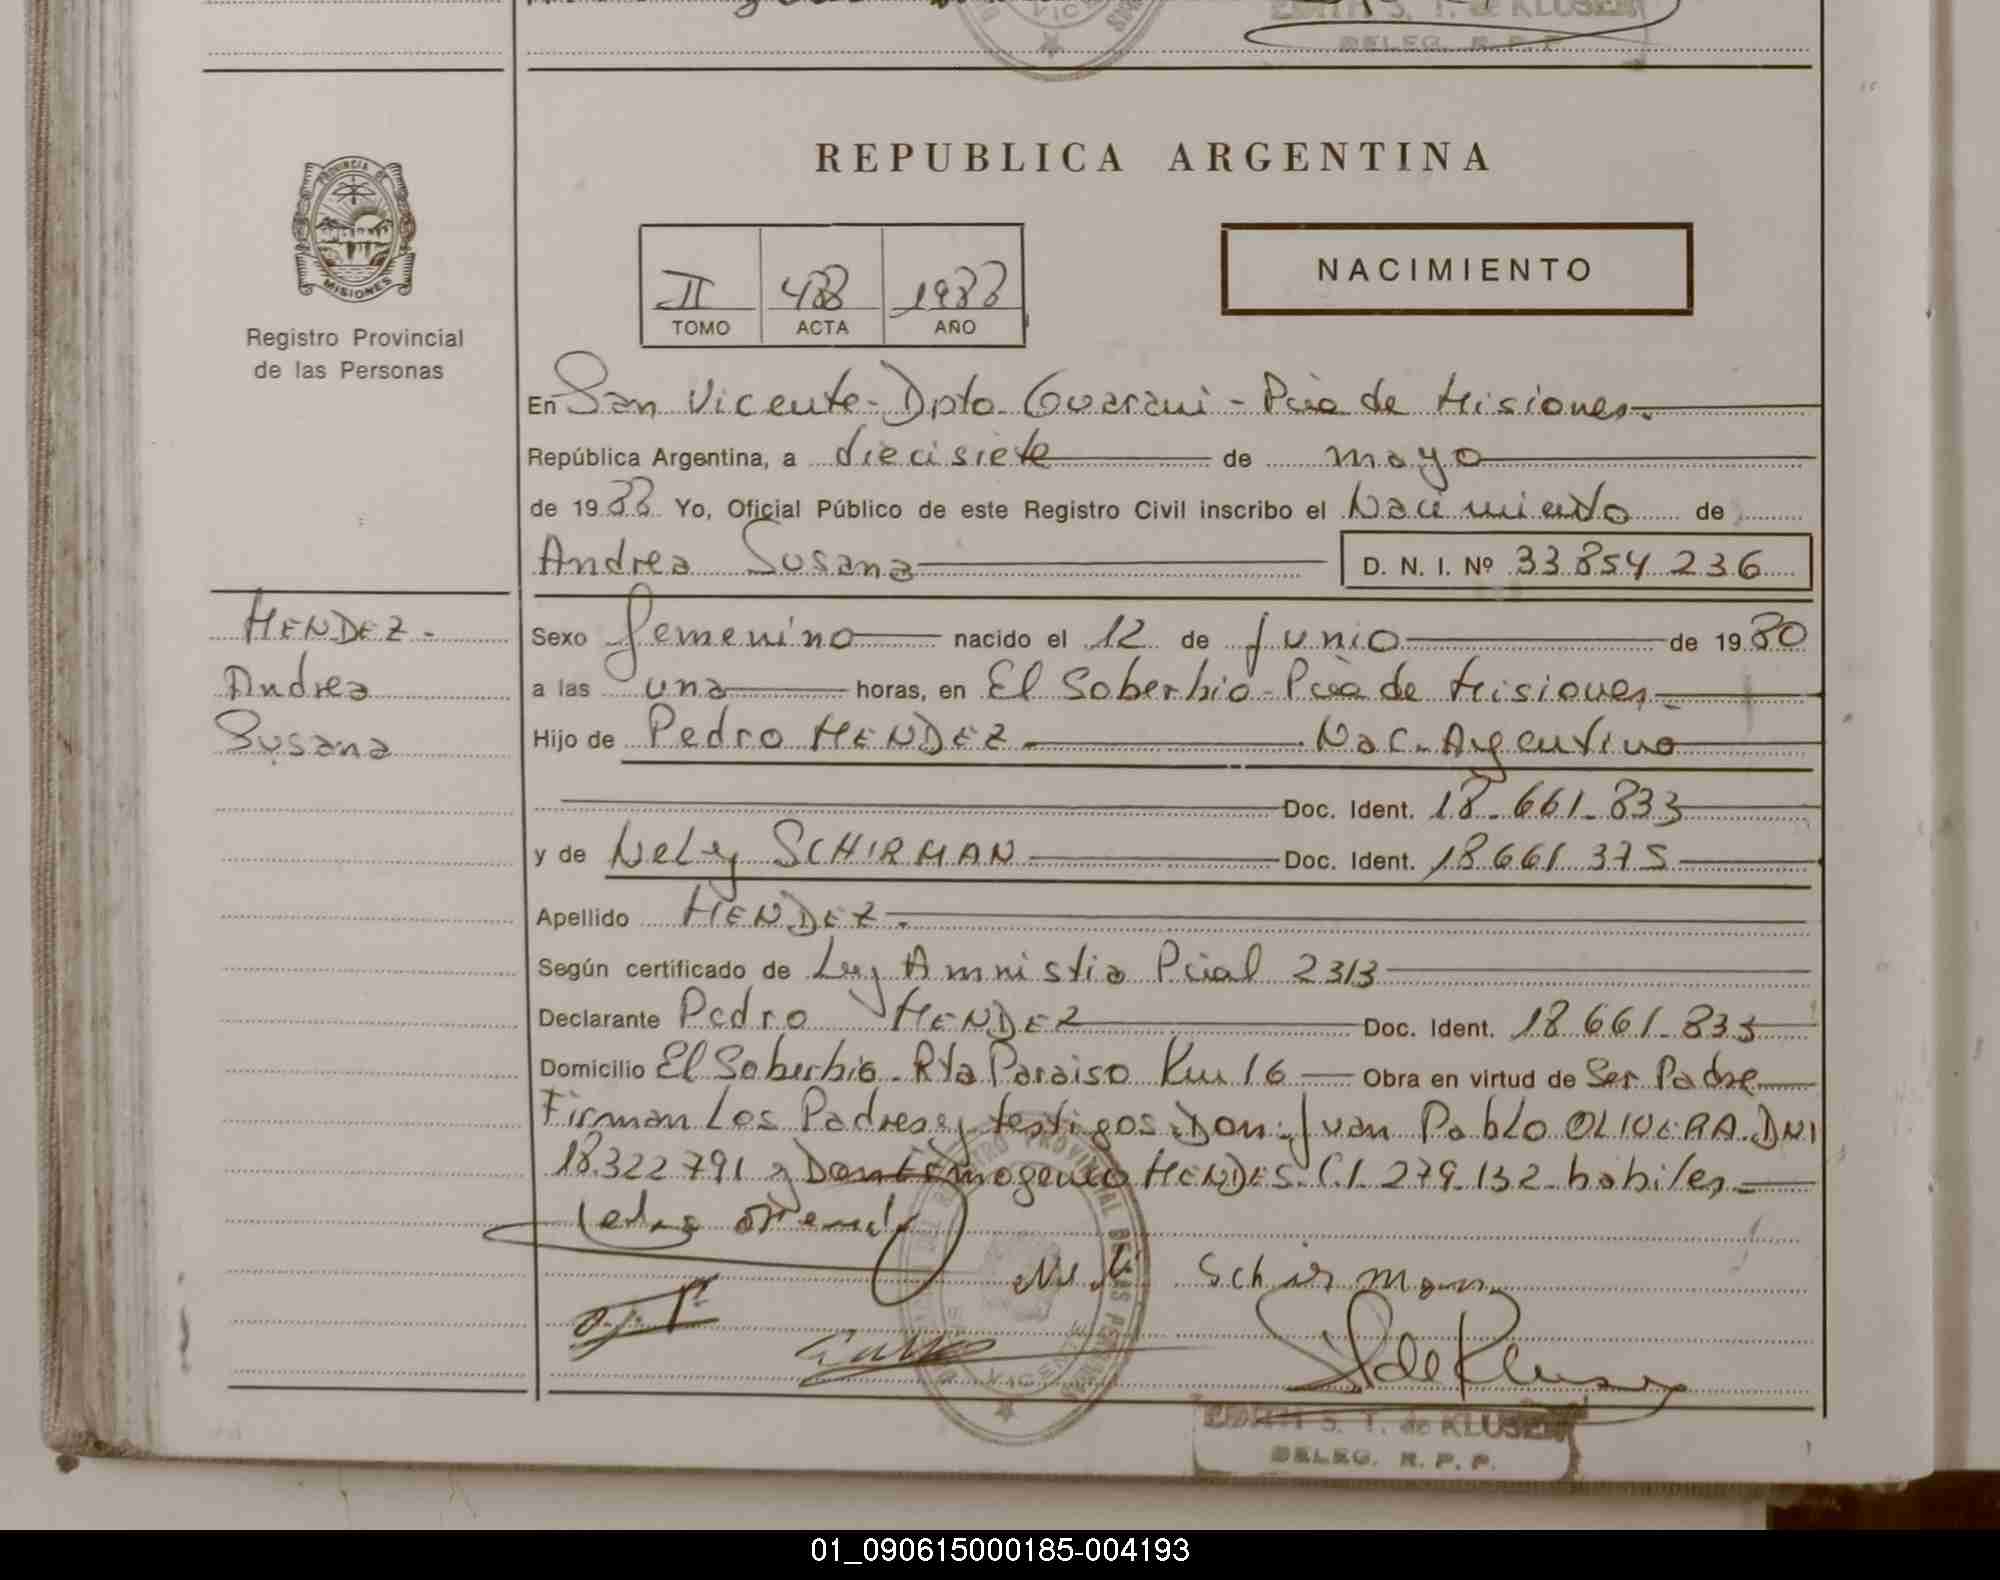 EDITH S. T. de KLUSER
DELEG. R. P. P.
REPUBLICA ARGENTINA
PROVINCIA DE
MISIONES
Registro Provincial
de las Personas
II 488 1988
TOMO ACTA AÑO
NACIMIENTO
En San Vicente - Dpto Guarani - Pcia de Misiones.
República Argentina, a diecisiete de mayo
de 1988 Yo, Oficial Público de este Registro Civil inscribo el Nacimiento de
Andrea Susana D. N. I. Nº 33.854.236
MENDEZ -
Andrea
Susana
Sexo femenino nacido el 12 de junio de 1980
a las una horas, en El Soberbio - Pcia de Misiones.
Hijo de Pedro MENDEZ Nac. Argentino
Doc. Ident. 18.661.833
y de Nely SCHIRMAN Doc. Ident. 18.661.375
Apellido MENDEZ.
Según certificado de Ley Amnistia Pcial 2313
Declarante Pedro MENDEZ Doc. Ident. 18.661.833
Domicilio El Soberbio - Rta Paraiso Km 16 Obra en virtud de Ser Padre
Firman Los Padres y testigos Don: Juan Pablo OLIVERA. DNI
18.322.791 y Don MENDES C.I. 279.132 habiles
Schirman
S de Kluser
EDITH S. T. de KLUSER
DELEG. R. P. P.
01_090615000185-004193